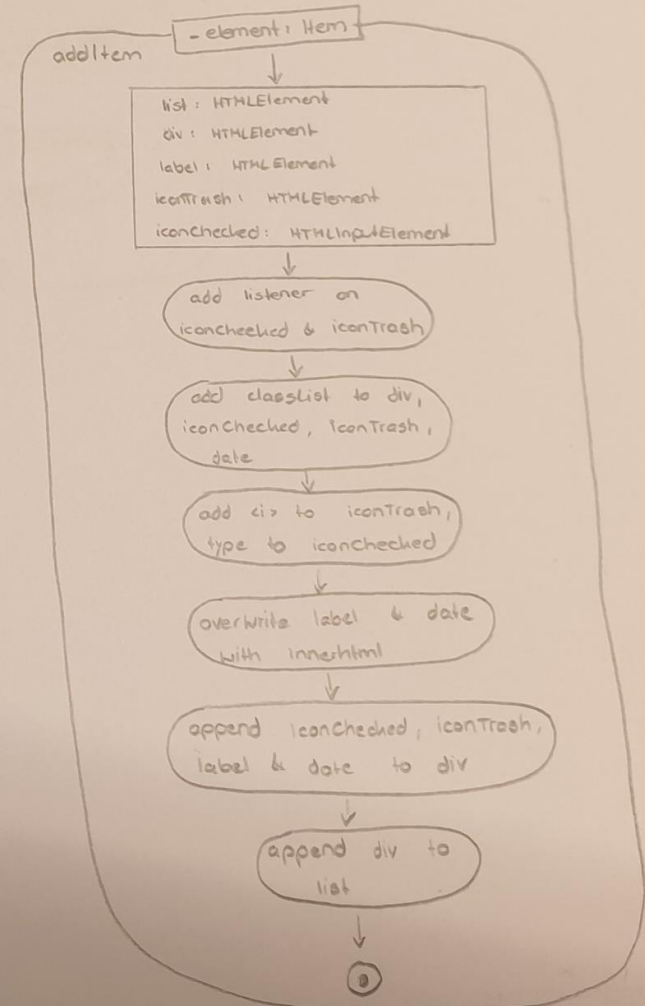 - element: Item
addItem
list: HTMLElement
div: HTMLElement
label: HTMLElement
iconTrash: HTMLElement
iconChecked: HTMLInputElement
add listener on
iconChecked & iconTrash
add classList to div,
iconChecked, iconTrash,
date
add <i> to iconTrash,
type to iconChecked
overwrite label & date
with innerhtml
append iconChecked, iconTrash,
label & date to div
append div to
list